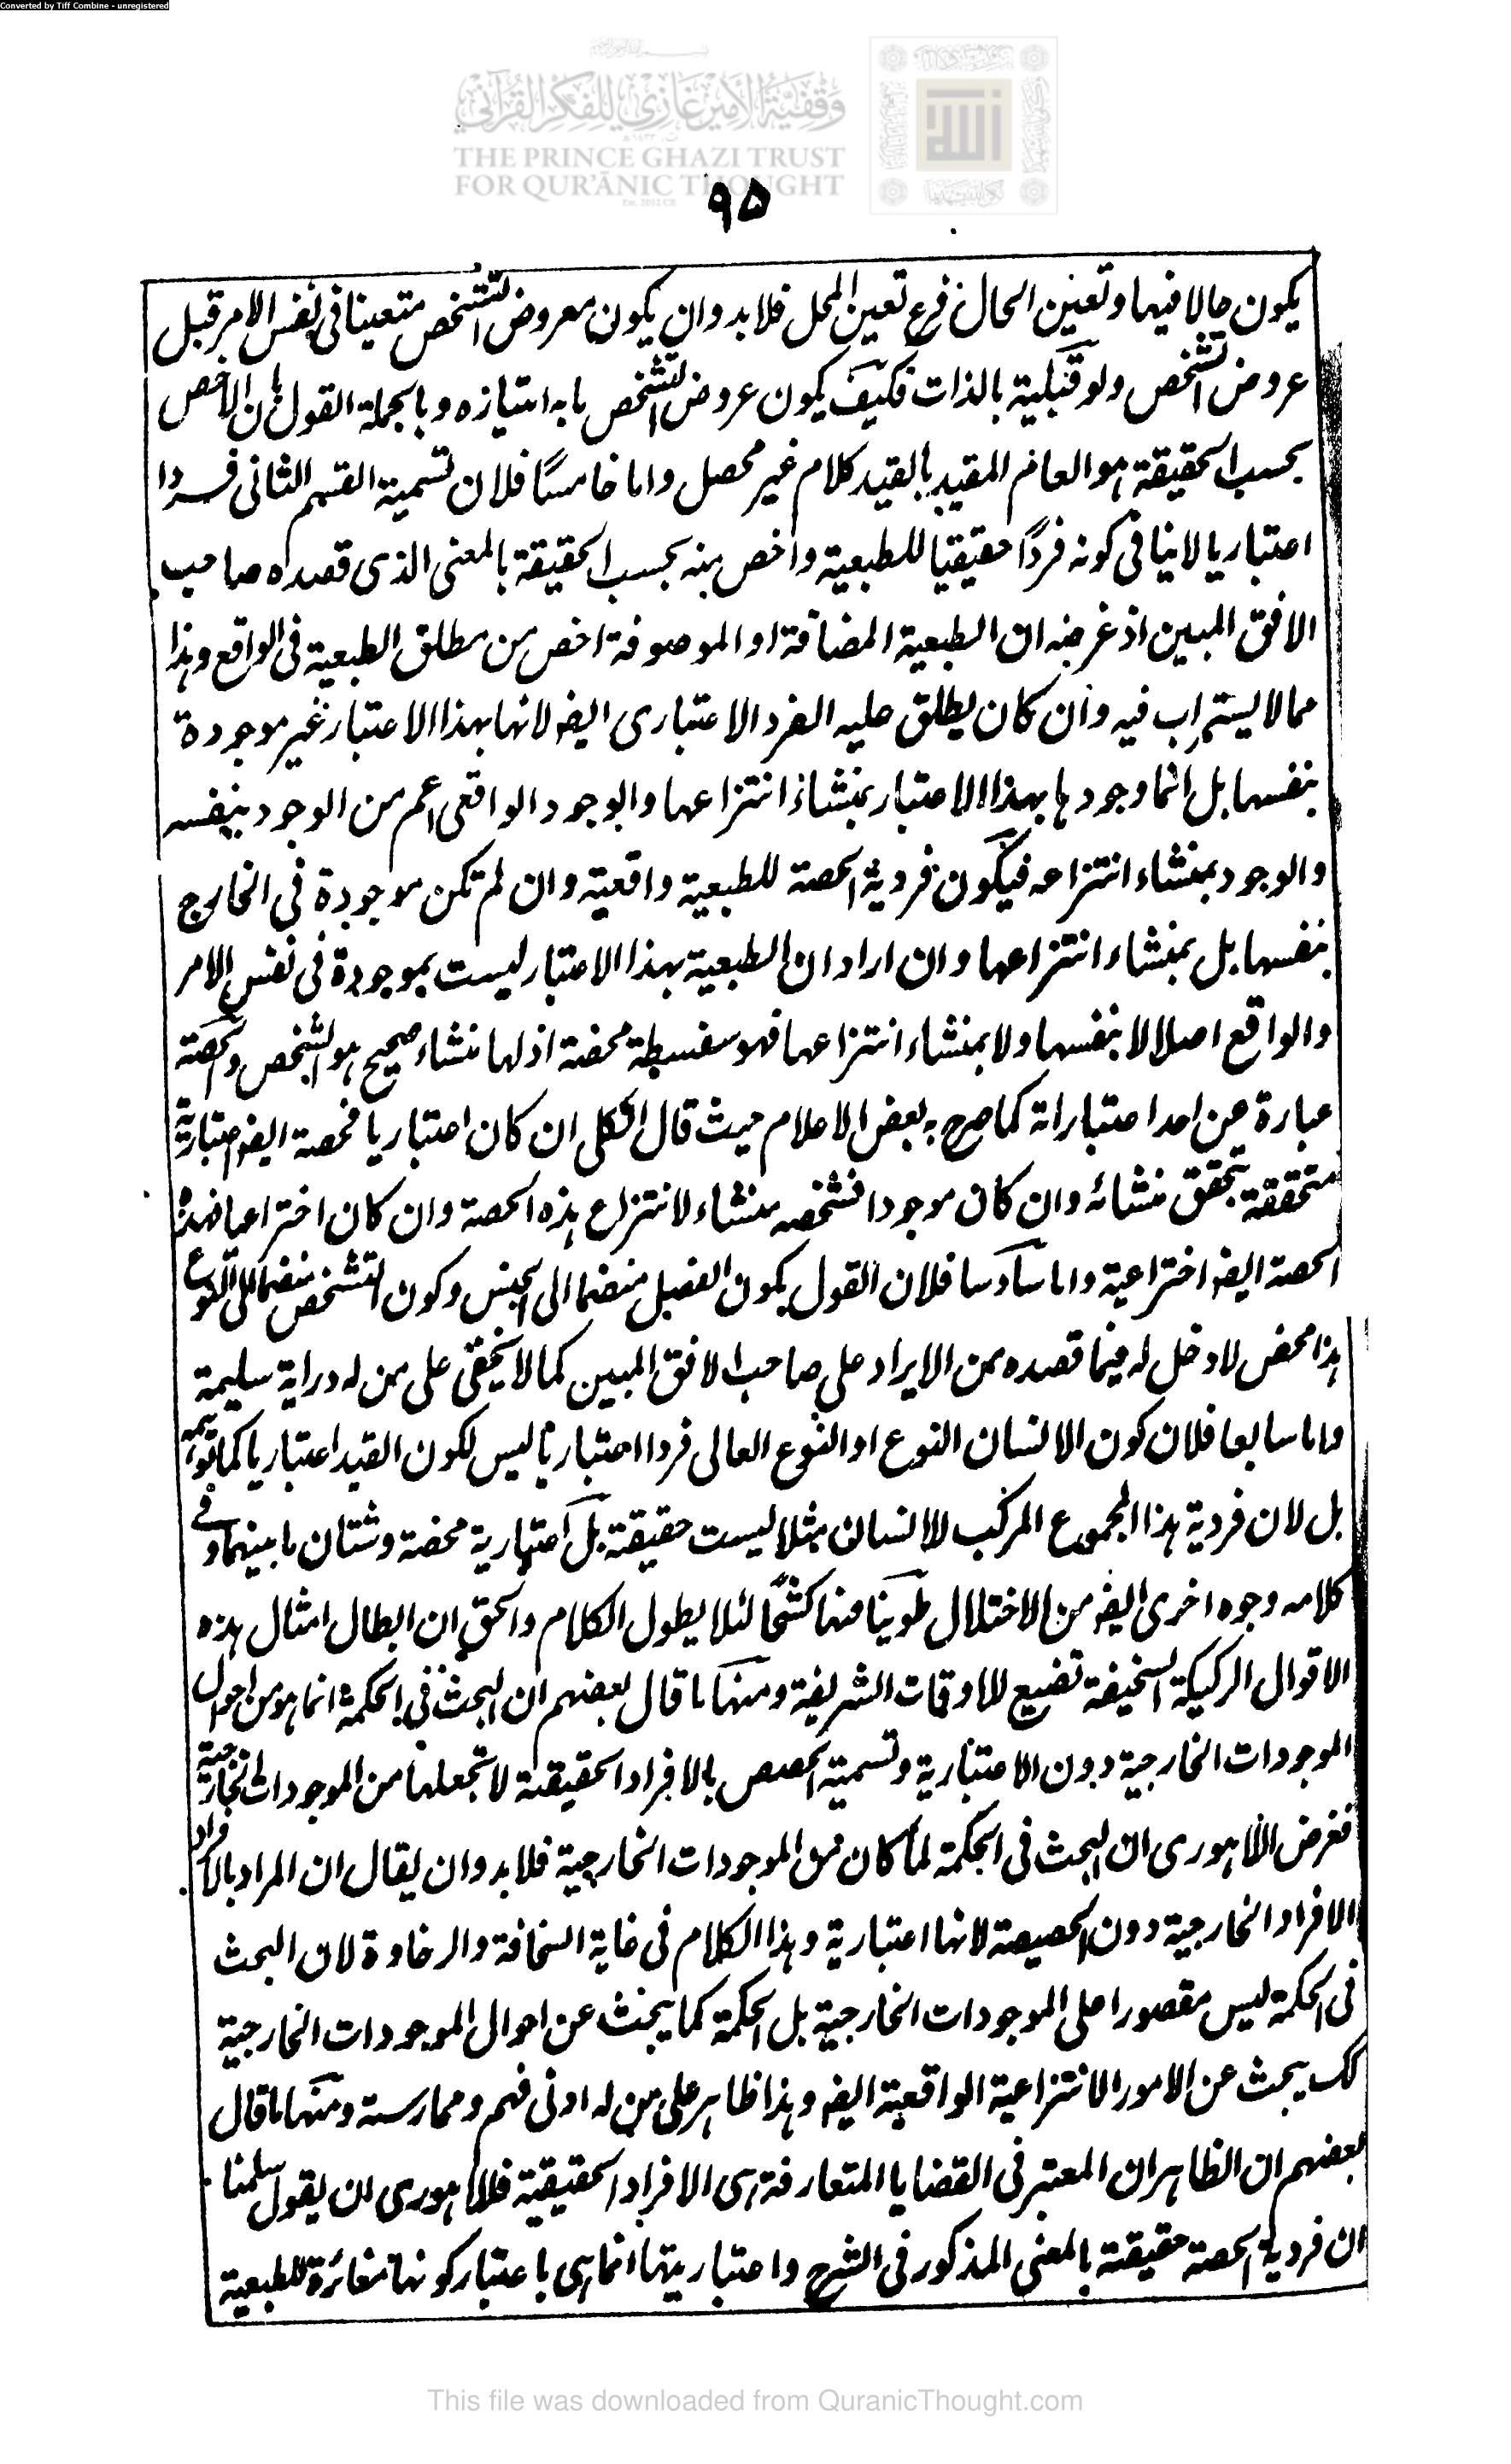 Converted by Tiff Combine - unregistered
وقفية الأمير غازي للفكر القرآني
THE PRINCE GHAZI TRUST
FOR QUR'ĀNIC THOUGHT
Est. 2012 CE
٩٥
يكون حالا فيها وتعين الحال فرع تعين المحل فلا بد وان يكون معروض التشخص متعينا فى نفس الامر قبل
عروض التشخص ولو قبلية بالذات فكيف يكون عروض التشخص ما به امتيازه وبالجملة القول بان الاخص
بحسب الحقيقة هو العام المقيد بالقيد كلام غير محصل واما خامسًا فلان تسمية القسم الثانى فردا
اعتباريا لا ينافى كونه فردًا حقيقيا للطبعية واخص منه بحسب الحقيقة بالمعنى الذى قصده صاحب
الافق المبين اذ غرضه ان الطبعية المضافة او الموصوفة اخص من مطلق الطبعية فى الواقع وهذا
مما لا يستراب فيه وان كان يطلق عليه الفرد الاعتبارى ايضر لانها بهذا الاعتبار غير موجودة
بنفسها بل انما وجودها بهذا الاعتبار بمنشاء انتزاعها والوجود الواقعى اعم من الوجود بنفسه
والوجود بمنشاء انتزاعه فيكون فردية الحصة للطبعية واقعية وان لم تكن موجودة فى الخارج
بنفسها بل بمنشاء انتزاعها وان اراد ان الطبعية بهذا الاعتبار ليست بموجودة فى نفس الامر
والواقع اصلا لا بنفسها ولا بمنشاء انتزاعها فهو سفسطة محضة اذ لها منشاء صحيح هو الشخص والحصة
عبارة عن احد اعتباراته كما صرح به بعض الاعلام حيث قال الكلى ان كان اعتباريا فحصة ايضر اعتبارية
متحققة بتحقق منشائه وان كان موجودا فشخصه منشاء لانتزاع هذه الحصة وان كان اختراعيا فهذه
الحصة ايضر اختراعية واما سادسا فلان القول بكون الفصل منضما الى الجنس وكون التشخص منضما الى النوع
هذا محض لا دخل له فيما قصده من الايراد على صاحب الافق المبين كما لا يخفى على من له دراية سليمة
واما سابعا فلان كون الانسان النوع او النوع العالى فردا اعتباريا ليس لكون القيد اعتباريا كما توهمه
بل لان فردية هذا المجموع المركب للانسان مثلا ليست حقيقة بل اعتبارية محضة وشتان ما بينهما وفى
كلامه وجوه اخرى ايضر من الاختلال طوينا منها كشحًا لئلا يطول الكلام والحق ان ابطال امثال هذه
الاقوال الركيكة السخيفة تضييع للاوقات الشريفة ومنها ما قال بعضهم ان البحث فى الحكمة انما هو من احوال
الموجودات الخارجية دون الاعتبارية وتسمية الحصص بالافراد الحقيقة لا تجعلها من الموجودات الخارجية
فغرض اللاهورى ان البحث فى الحكمة لما كان من الموجودات الخارجية فلا بد وان يقال ان المراد بالافراد
الافراد الخارجية دون الحصيصة لانها اعتبارية وهذا الكلام فى غاية السخافة والرخاوة لان البحث
فى الحكمة ليس مقصورا على الموجودات الخارجية بل الحكمة كما يبحث عن احوال الموجودات الخارجية
كك يبحث عن الامور الانتزاعية الواقعية ايضر وهذا ظاهر على من له ادنى فهم وممارسة ومنها ما قال
بعضهم ان الظاهر ان المعتبر فى القضايا المتعارفة هى الافراد الحقيقية فللاهورى ان يقول سلمنا
ان فردية الحصة حقيقة بالمعنى المذكور فى الشرح واعتباريتها انما هى باعتبار كونها مغائرة للطبعية
This file was downloaded from QuranicThought.com